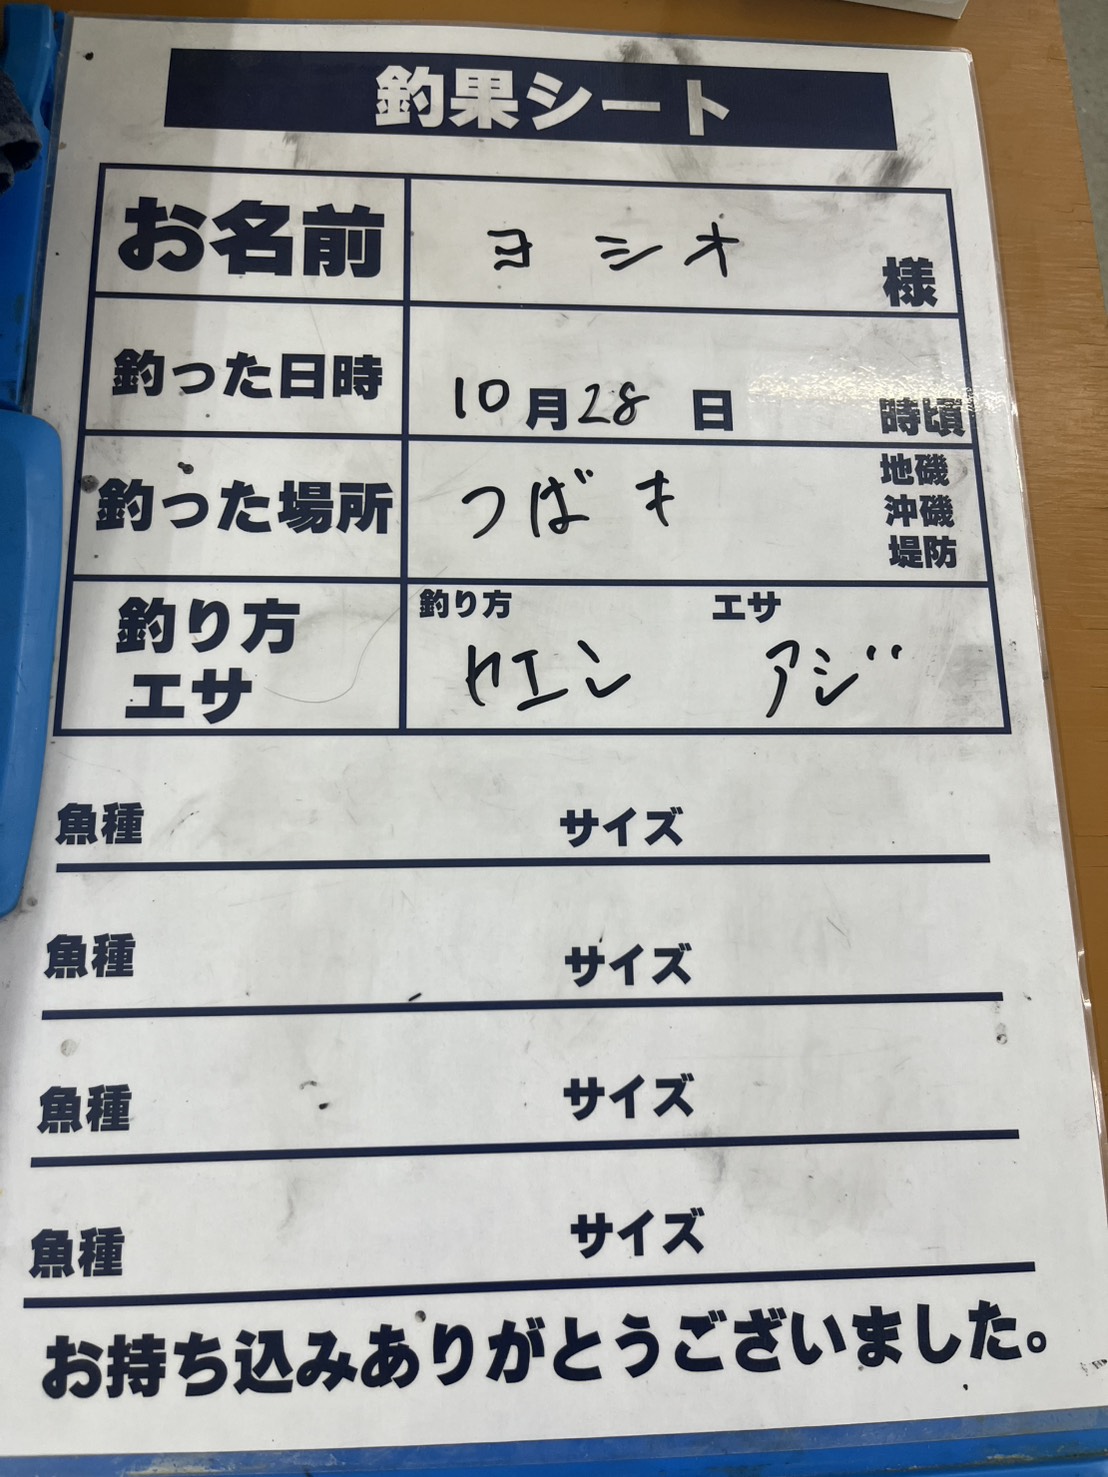 釣果シート
お名前 ヨシオ 様
釣った日時 10月28日 時頃
釣った場所 つばき 地磯
沖磯
堤防
釣り方 エサ
釣り方
エサ
ヤエン アジ
魚種 サイズ
魚種 サイズ
魚種 サイズ
魚種 サイズ
お持ち込みありがとうございました。